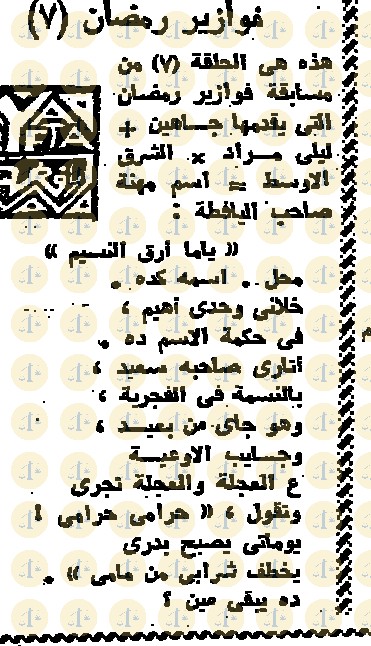 فوازير رمضان (٧)
هذه هى الحلقة (٧) من
مسابقة فوازير رمضان
التى يقدمها جـــاهين +
ليلى مـــراد × الشرق
الاوسط = اسم مهنة
صاحب اليافطة :
(( ياما أرق النسيم ))
محل .. اسمه كده .
خلانى وحدى أهيم ،
فى حكمة الاسم ده .
أتارى صاحبه سعيد ،
بالنسمة فى الفجرية ،
وهو جاى من بعيـــد ،
وجـــايب الاوعيـــة
ع العجلة والعجلة تجرى
وتقول ، (( حرامى حرامى !
يوماتى يصبح بدرى
يخطف شرابى من مامى )) .
ده يبقى مين ؟